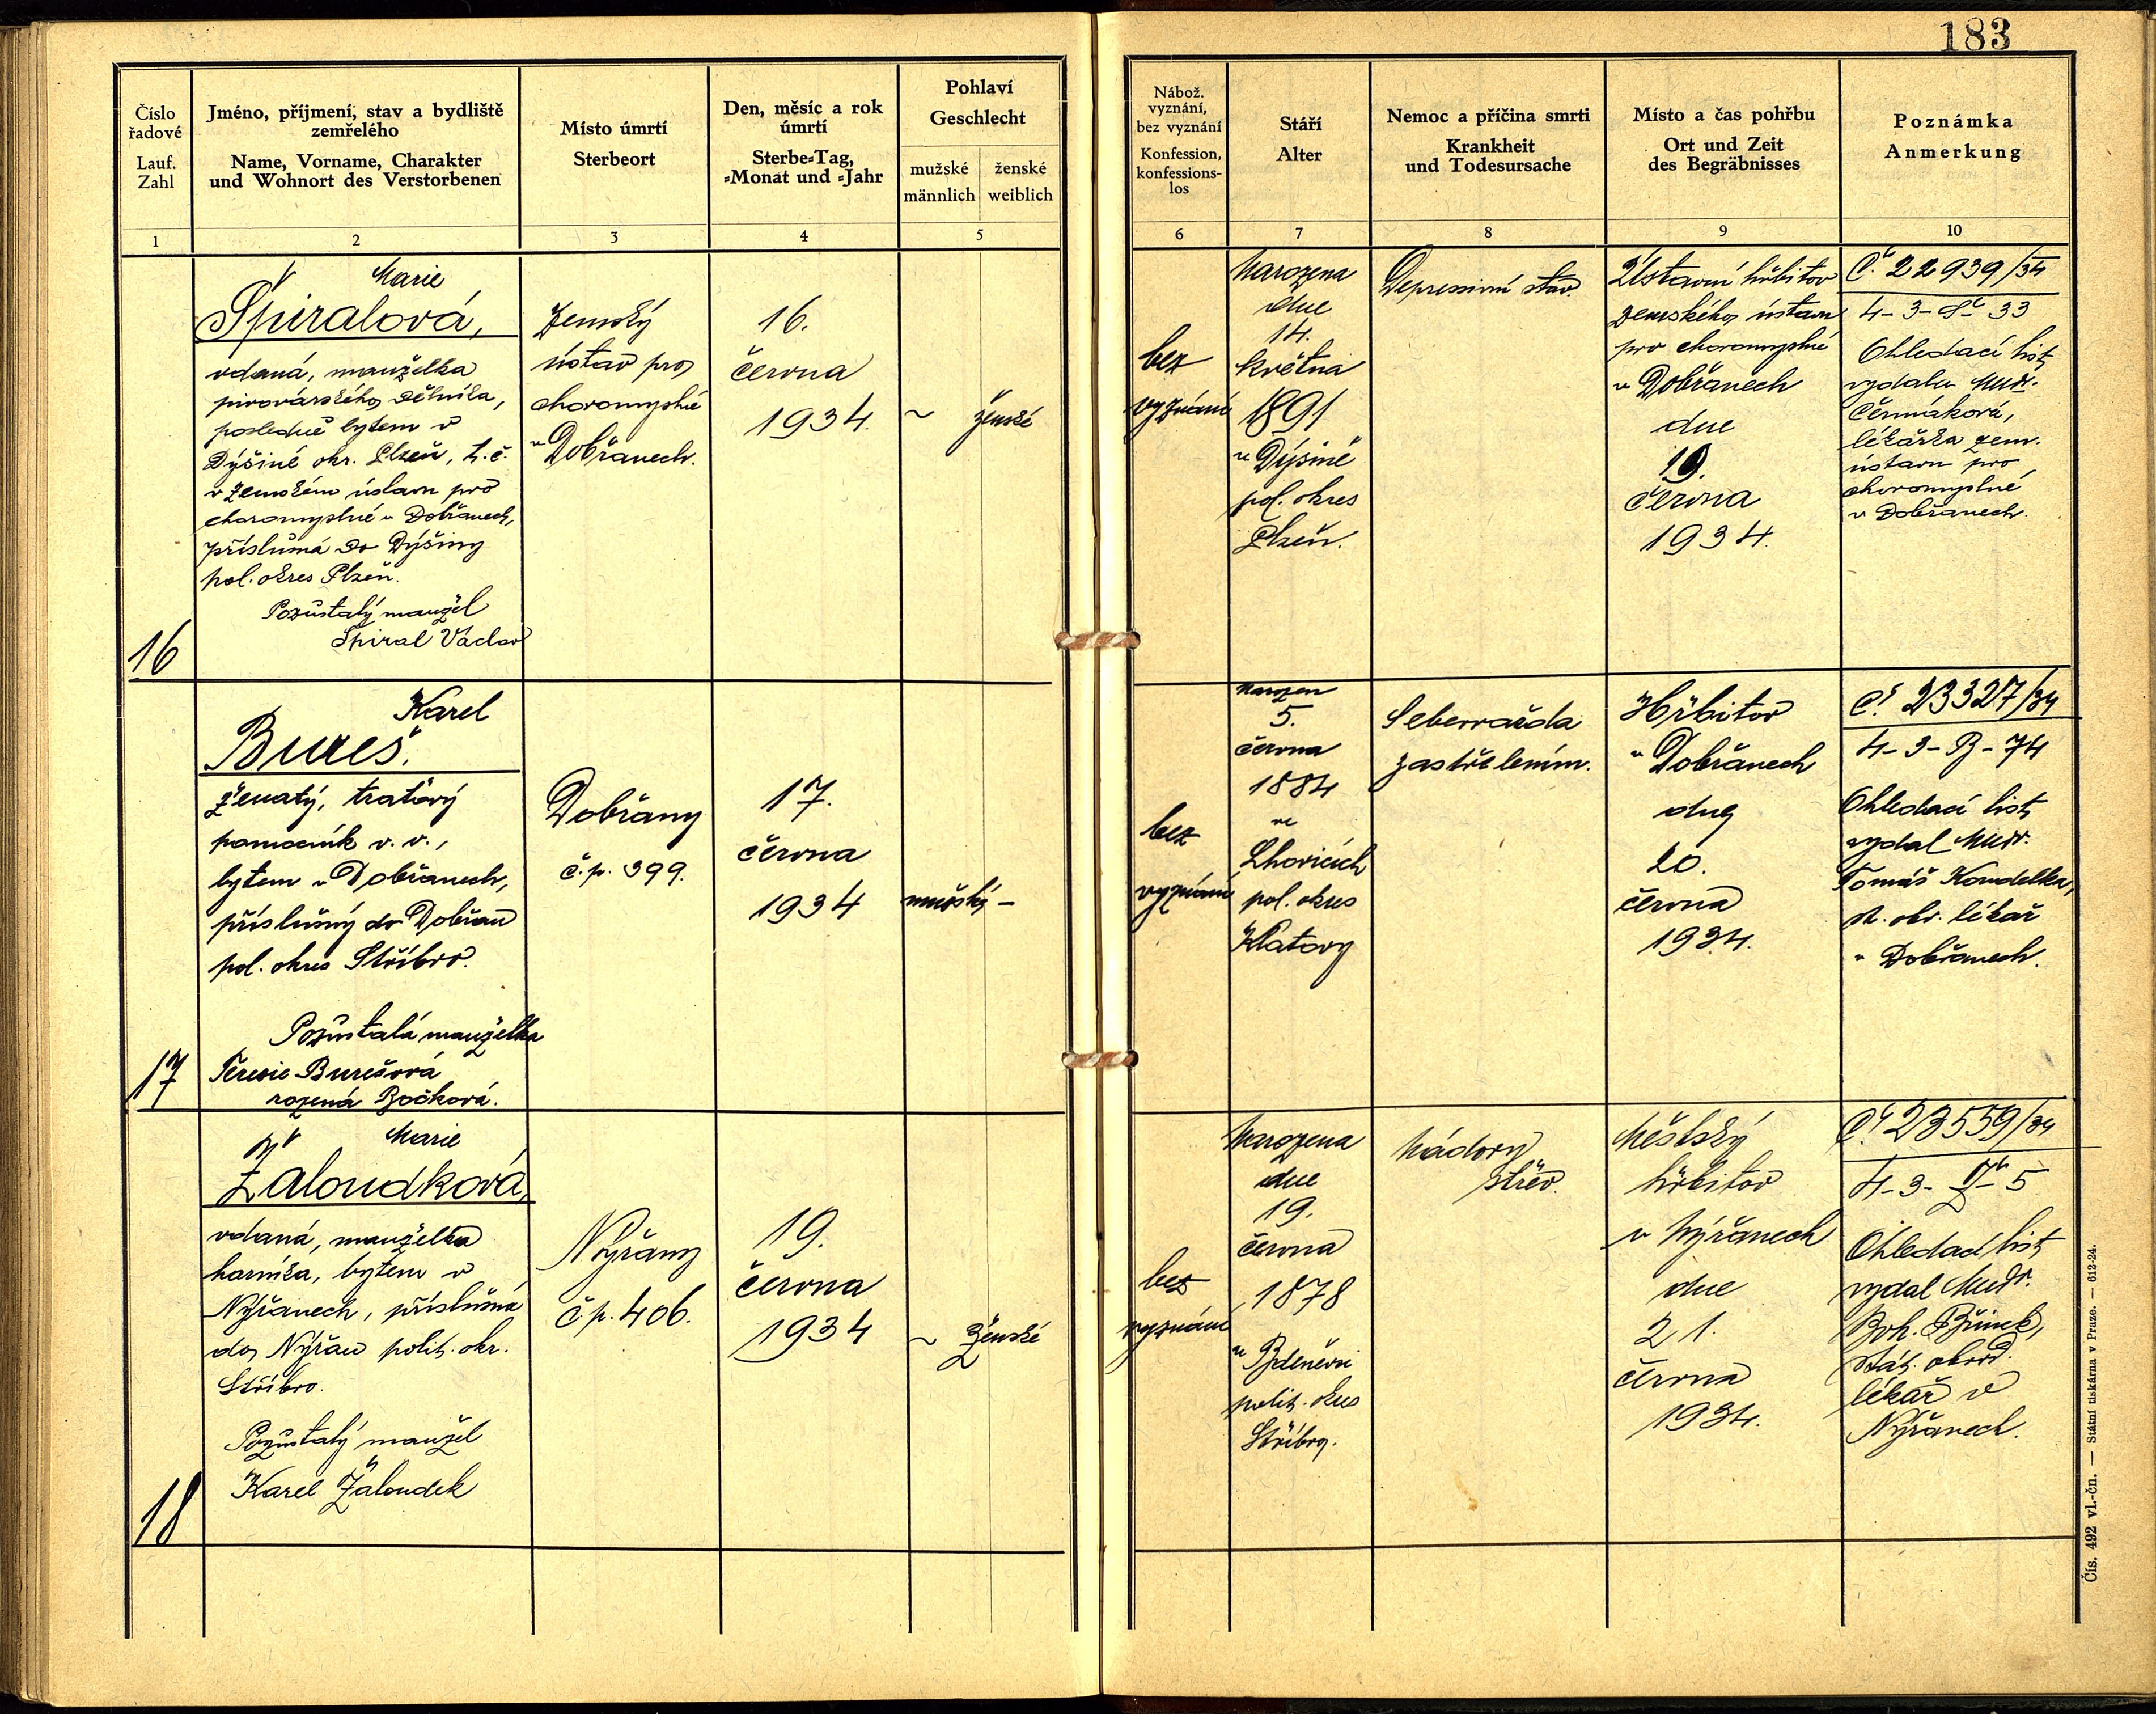 183
Číslo
řadové
Lauf.
Zahl
Jméno, příjmení, stav a bydliště
zemřelého
Name, Vorname, Charakter
und Wohnort des Verstorbenen
Místo úmrtí
Sterbeort
Den, měsíc a rok
úmrtí
Sterbe=Tag,
=Monat und =Jahr
Pohlaví
Geschlecht
mužské
männlich
ženské
weiblich
Nábož.
vyznání,
bez vyznání
Konfession,
konfessions-
los
Stáří
Alter
Nemoc a příčina smrti
Krankheit
und Todesursache
Místo a čas pohřbu
Ort und Zeit
des Begräbnisses
Poznámka
Anmerkung
1
2
3
4
5
6
7
8
9
10
16
Marie
Špiralová,
vdaná, manželka
pivovárského dělníka,
posledně bytem v
Dýšině okr. Plzeň, t. č.
v Zemském ústavu pro
choromyslné v Dobřanech,
příslušná do Dýšiny
pol. okres Plzeň.
Pozůstalý manžel
Špiral Václav
Zemský
ústav pro
choromyslné
v Dobřanech.
16.
června
1934.
~ ženské
bez
vyznání
Narozena
dne
14.
května
1891
v Dýšině
pol. okres
Plzeň.
Depressivní stav.
Ústavní hřbitov
zemského ústavu
pro choromyslné
v Dobřanech
dne
19.
června
1934.
Č. 22939/34
4-3-Š-33
Ohledací list
vydala Mudr.
Čermáková,
lékařka zem.
ústavu pro
choromyslné
v Dobřanech.
17
Karel
Bureš.
ženatý, traťový
pomocník v. v.,
bytem v Dobřanech,
příslušný do Dobřan
pol. okres Stříbro.
Pozůstalá manželka
Terezie Burešová
rozená Bočková.
Dobřany
č.p. 399.
17.
června
1934
mužský –
bez
vyznání
narozen
5.
června
1884
ve
Lhovicích
pol. okres
Klatovy
Sebevražda
zastřelením.
Hřbitov
v Dobřanech
dne
20.
června
1934.
Č. 23327/34
4-3-B-74
Ohledací list
vydal Mudr.
Tomáš Koudelka,
st. obv. lékař
v Dobřanech.
18
Marie
Žaloudková,
vdaná, manželka
horníka, bytem v
Nýřanech, příslušná
do Nýřan polit. okr.
Stříbro.
Pozůstalý manžel
Karel Žaloudek
Nýřany
č.p. 406.
19.
června
1934
~ ženské
bez
vyznání
Narozena
dne
19.
června
1878
ve Zdeněvsi
polit. okres
Stříbro.
Nádory
střev.
Městský
hřbitov
v Nýřanech
dne
21.
června
1934.
Č. 23559/34
4-3-Ž-5
Ohledací list
vydal Mudr.
Boh.
stát. obvod.
lékař v
Nýřanech.
Čís. 492 vl.-čn. — Státní tiskárna v Praze. — 612-24.